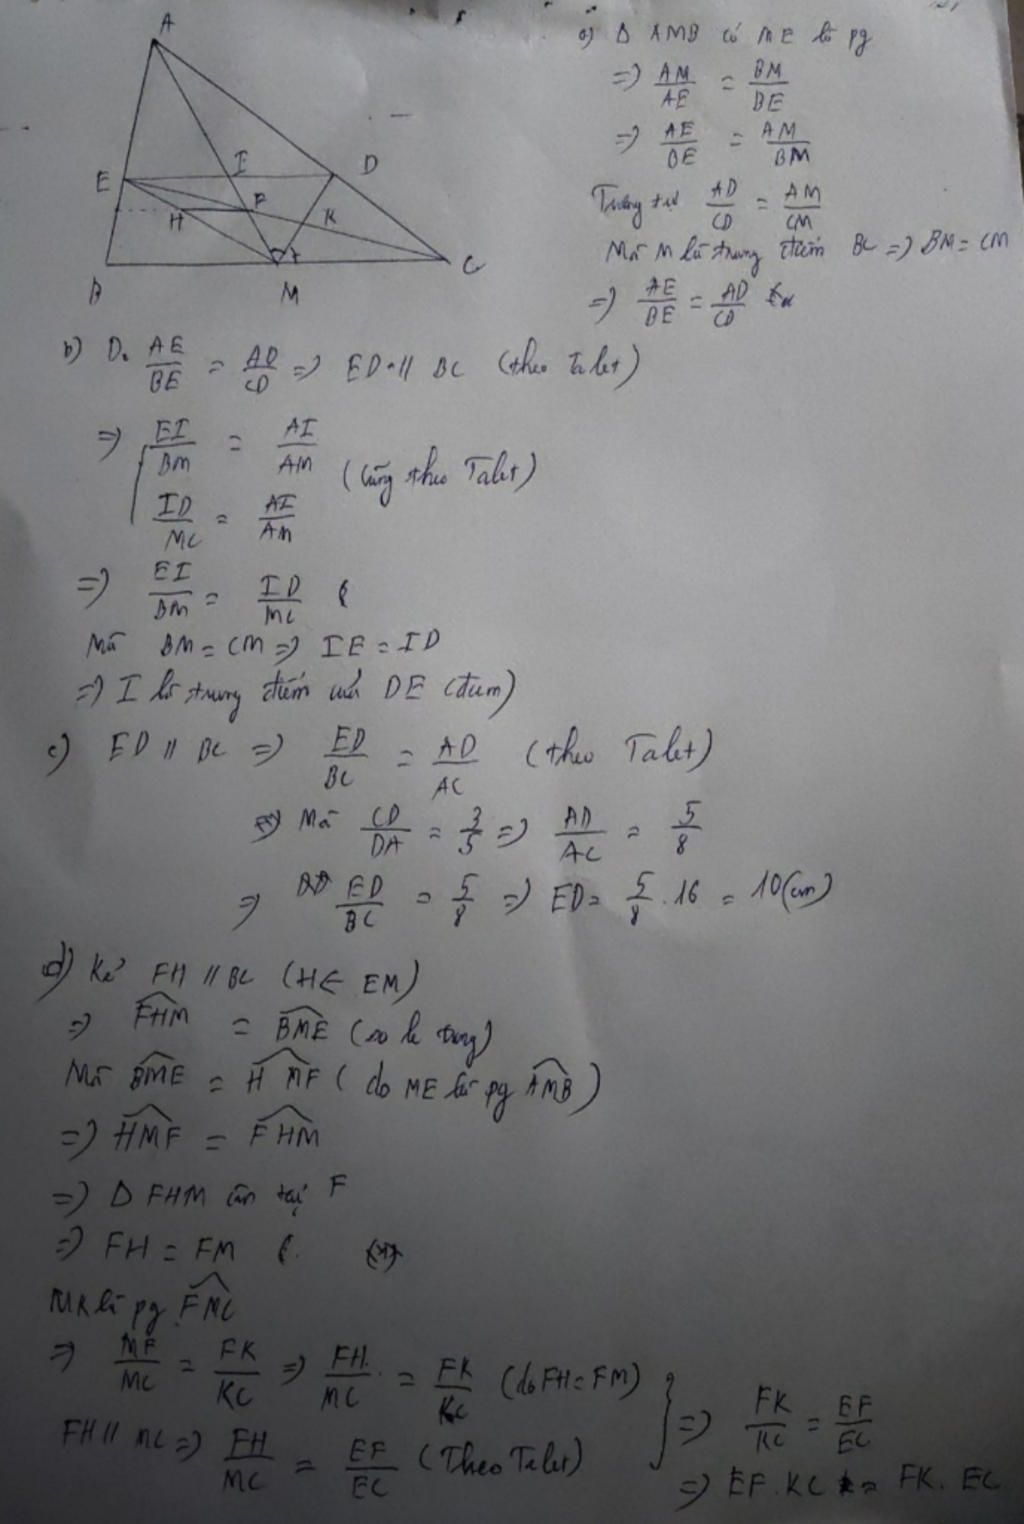 A
E
I
D
H
F
K
B
M
C
a) Δ AMB có ME là pg
=> AM/AE = BM/BE
=> AE/BE = AM/BM
Tương tự AD/CD = AM/CM
Mà M là trung điểm BC => BM = CM
=> AE/BE = AD/CD
b) D. AE/BE = AD/CD => ED // BC (theo Talet)
=> EI/BM = AI/AM
(cũng theo Talet)
ID/MC = AI/AM
=> EI/BM = ID/MC
Mà BM = CM => IE = ID
=> I là trung điểm của DE (đccm)
c) ED // BC => ED/BC = AD/AC (theo Talet)
Mà CD/DA = 3/5 => AD/AC = 5/8
=> ED/BC = 5/8 => ED = 5/8 . 16 = 10 (cm)
d) Kẻ FH // BC (H ∈ EM)
=> FHM = BME (so le trong)
Mà BME = HMF (do ME là pg AMB)
=> HMF = FHM
=> Δ FHM cân tại F
=> FH = FM
MK là pg FMC
=> MF/MC = FK/KC => FH/MC = FK/KC (do FH = FM)
FH // MC => FH/MC = EF/EC (Theo Talet)
=> FK/KC = EF/EC
=> EF . KC = FK . EC